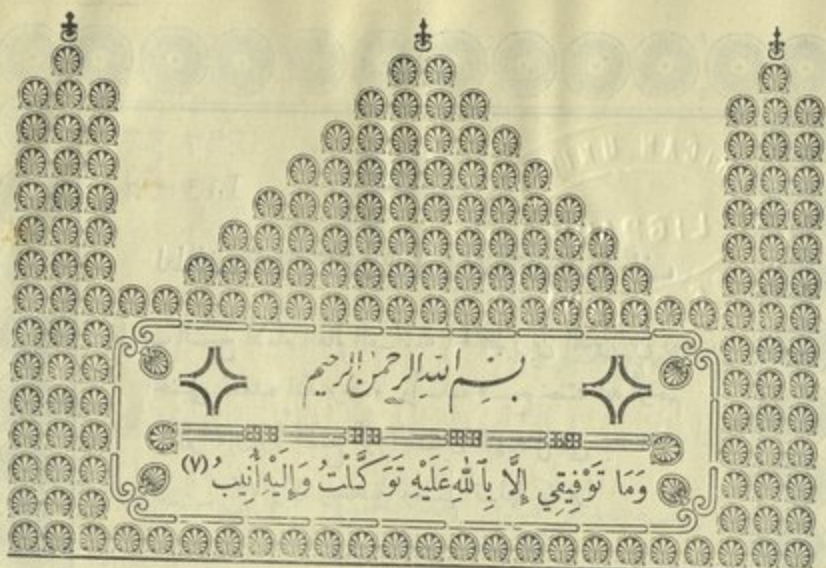 بِسْمِ اللهِ الرحمن الرحيم
وَمَا تَوْفِيقِي إِلَّا بِاللهِ عَلَيْهِ تَوَكَّلْتُ وَإِلَيْهِ أُنِيبُ (٧)